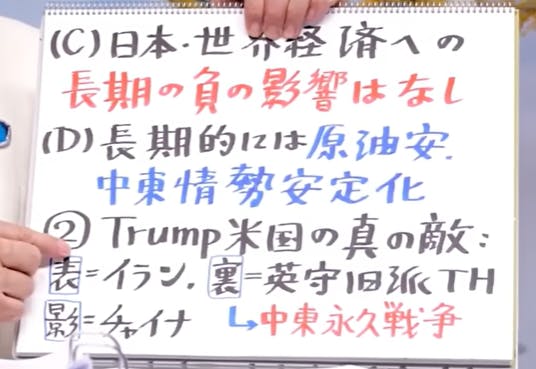 (C)日本・世界経済への
長期の負の影響はなし
(D)長期的には原油安.
中東情勢安定化
②Trump米国の真の敵:
表=イラン. 裏=英守旧派TH
影=チャイナ ↳中東永久戦争